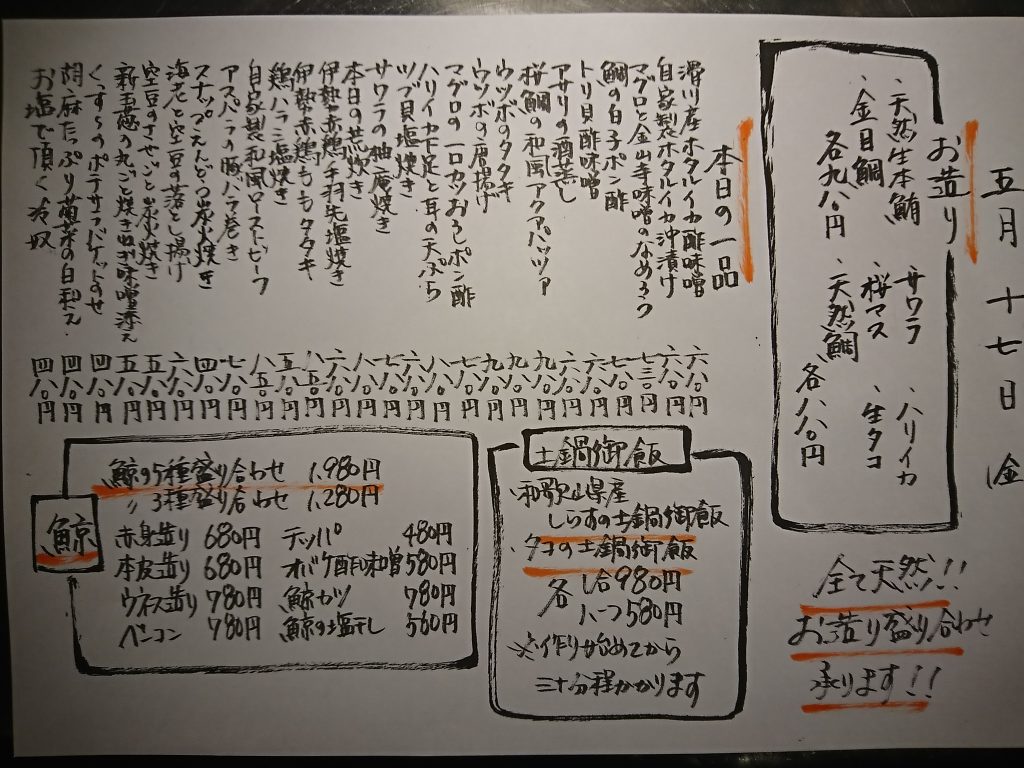 五月十七日 金
お造り
・天然生本鮪 ・サワラ ・ハリイカ
・金目鯛 ・桜マス ・生タコ
各九八〇円 ・天然鯛 各八八〇円
全て天然!!
お造り盛り合わせ
承ります!!
本日の一品
滑川産ホタルイカ酢味噌 六八〇円
自家製ホタルイカ沖漬け 六八〇円
マグロと金山寺味噌のなめろう 七三〇円
鯛の白子ポン酢 七八〇円
トリ貝酢味噌 六八〇円
アサリの酒蒸し 六八〇円
桜鯛の和風アクアパッツァ 九八〇円
ウツボのタタキ 九八〇円
ウツボの唐揚げ 九八〇円
マグロの一口カツおろしポン酢 七八〇円
ハリイカ下足と耳の天ぷら 八八〇円
ツブ貝塩焼き 六八〇円
サワラの柚庵焼き 七八〇円
本日の煮炊き 六八〇円
伊勢赤鶏手羽先塩焼き 六八〇円
伊勢赤鶏ももタタキ 八五〇円
鶏ハラミ塩焼き 五八〇円
自家製和風ローストビーフ 八五〇円
アスパラの豚バラ巻き 七八〇円
スナップえんどう炭火焼き 四八〇円
海老と空豆の落とし揚げ 六八〇円
空豆のさやごと炭火焼き 五八〇円
新玉葱の丸ごと焼き 味噌添え 五八〇円
くんせいのポテサラバケットのせ 四八〇円
胡麻たっぷり 菜の白和え 四八〇円
お塩で頂く冷奴 四八〇円
土鍋御飯
・和歌山県産
しらすの土鍋御飯
・タコの土鍋御飯
各 1合980円
ハーフ580円
※作り始めてから
三十分程かかります
鯨
鯨の5種盛り合わせ 1,980円
〃3種盛り合わせ 1,280円
赤身造り 680円 テッパ 480円
本皮造り 680円 オバケ酢味噌 580円
ウネス造り 780円 鯨カツ 780円
ベーコン 780円 鯨の塩干し 580円